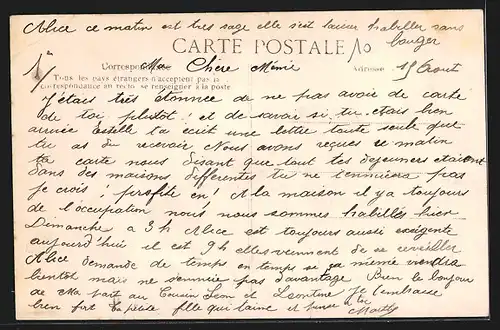 Alice ce matin est tres sage elle s'est laisser habiller sans
bouger
CARTE POSTALE
Correspondance
Adresse
Ma Chère Mémé
19 Aout
Tous les pays étrangers n'acceptent pas la
correspondance au recto, se renseigner à la poste
J'étais très étonnée de ne pas avoir de carte
de toi plutôt! et de savoir si tu étais bien
arrivée Estelle t'a écrit une lettre toute seule que
tu as du recevoir Nous avons reçues ce matin
ta carte nous disant que tout tes dejeuners étaient
dans des maisons differentes tu ne t'ennuiera pas
je crois! profite en, A la maison il y a toujours
de l'occupation nous nous sommes habillés hier
Dimanche a 3h Alice est toujours aussi exigente
aujourd'hui il est 9h elles viennent de se reveiller
Alice demande de temps en temps se sa mémé vendra
bientot mais ne s'ennuie pas d'avantage Bien le bonjour
de Ma part au Cousin Leon et Leontine Je t'embrasse
bien fort ta petite fille qui t'aime et pense a toi